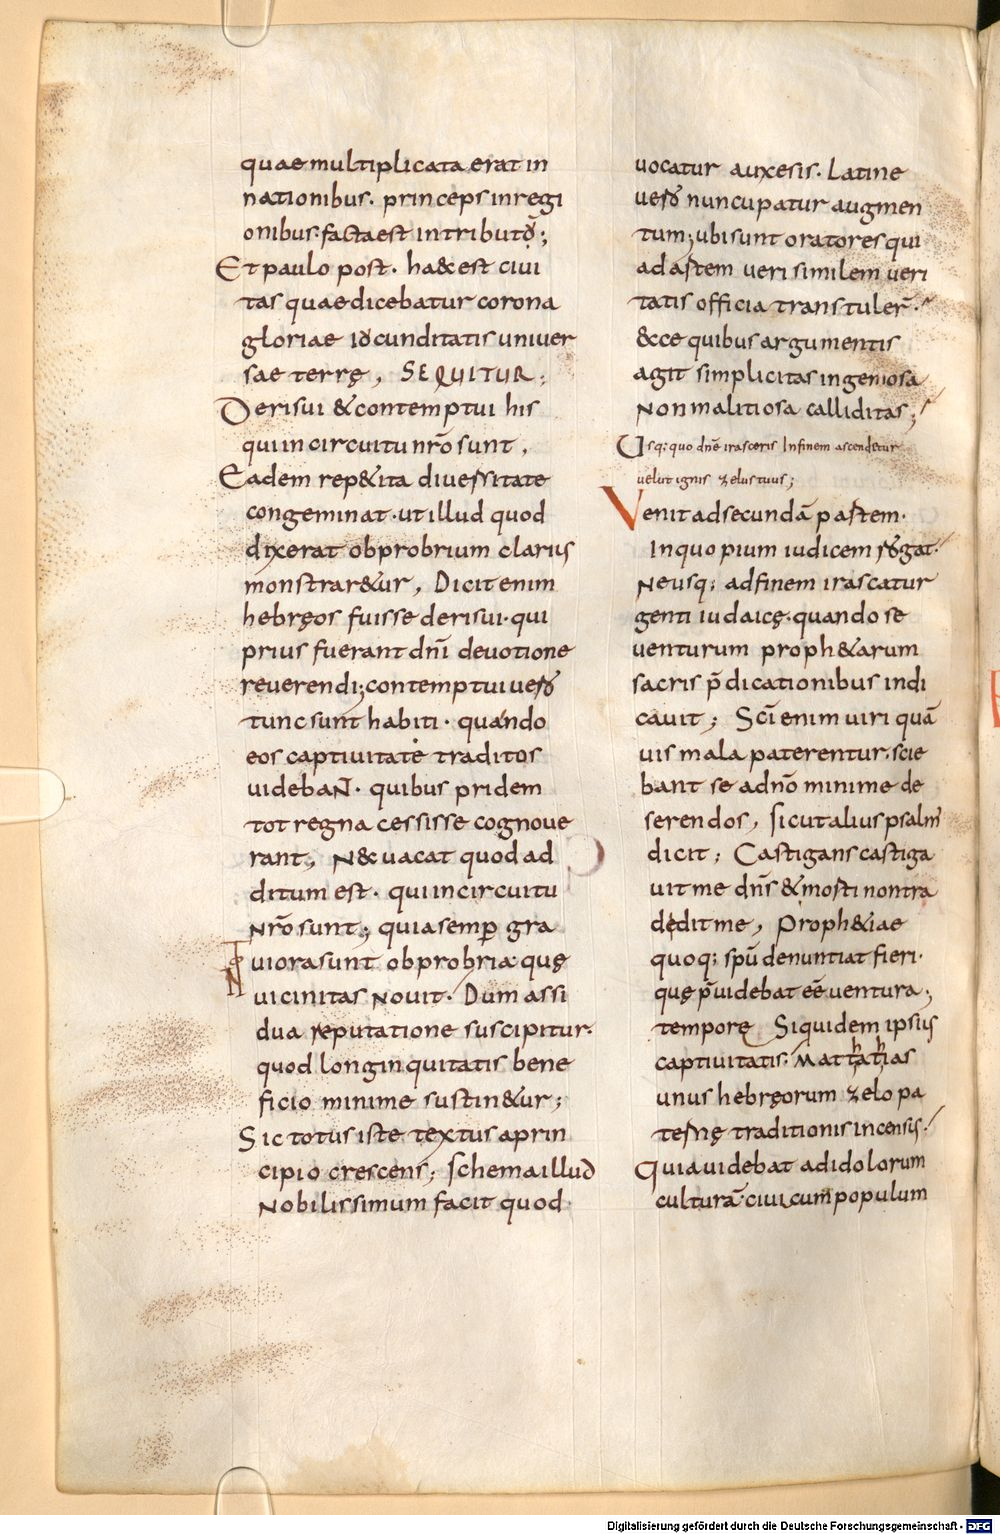 quae multiplicata erat in
nationibus. princeps in regi
onibus. facta est in tributū;
Et paulo post. haec est civi
tas quae dicebatur corona
gloriae iocunditatis univer
sae terrę, SEQUITUR;
Derisui & contemptui his
qui in circuitu nr̄o sunt,
Eadem rep&ita diversitate
congeminat. ut illud quod
dixerat obprobrium clarius
monstrar&ur, Dicit enim
hebręos fuisse derisui. qui
prius fuerant dn̄i devotione
reverendi; contemptui vero
tunc sunt habiti. quando
eos captivitate traditos
videbaNT. quibus pridem
tot regna cessisse cognove
rant, N& vacat quod ad
ditum est. qui in circuitu
Nr̄o sunt; quia semp̄ gra
viora sunt obprobria quę
vicinitas Novit. Dum assi
dua reputatione suscipitur.
quod longinquitatis bene
ficio minime sustin&ur;
Sic totus iste textus a prin
cipio crescens, schema illud
Nobilissimum facit quod
vocatur auxesis. Latine
vero nuncupatur augmen
tum; ubi sunt oratores qui
ad artem veri similem veri
tatis officia transtuler̄.
&cce quibus argumentis
agit simplicitas ingeniosa
Non malitiosa calliditas;
Usq; quo dn̄e irasceris In finem ascendetur
velut ignis zelus tuus;
Venit ad secundā partem.
In quo pium iudicem rogat.
Ne usq; ad finem irascatur
genti iudaicę. quando se
venturum proph&arum
sacris p̄dicationibus indi
cavit; Sc̄i enim viri quā
vis mala paterentur. scie
bant se a dn̄o minime de
serendos, sicut alius psalm'
dicit; Castigans castiga
vit me dn̄s & morti non tra
dedit me, Proph&iae
quoq; spū denuntiat fieri.
quę p̄videbat eē ventura;
temporę Siquidem ipsius
captivitatis. Mathathias
unus hebręorum zelo pa
ternę traditionis incensis.
Quia videbat ad idolorum
culturā civicum populum
Digitalisierung gefördert durch die Deutsche Forschungsgemeinschaft - DFG